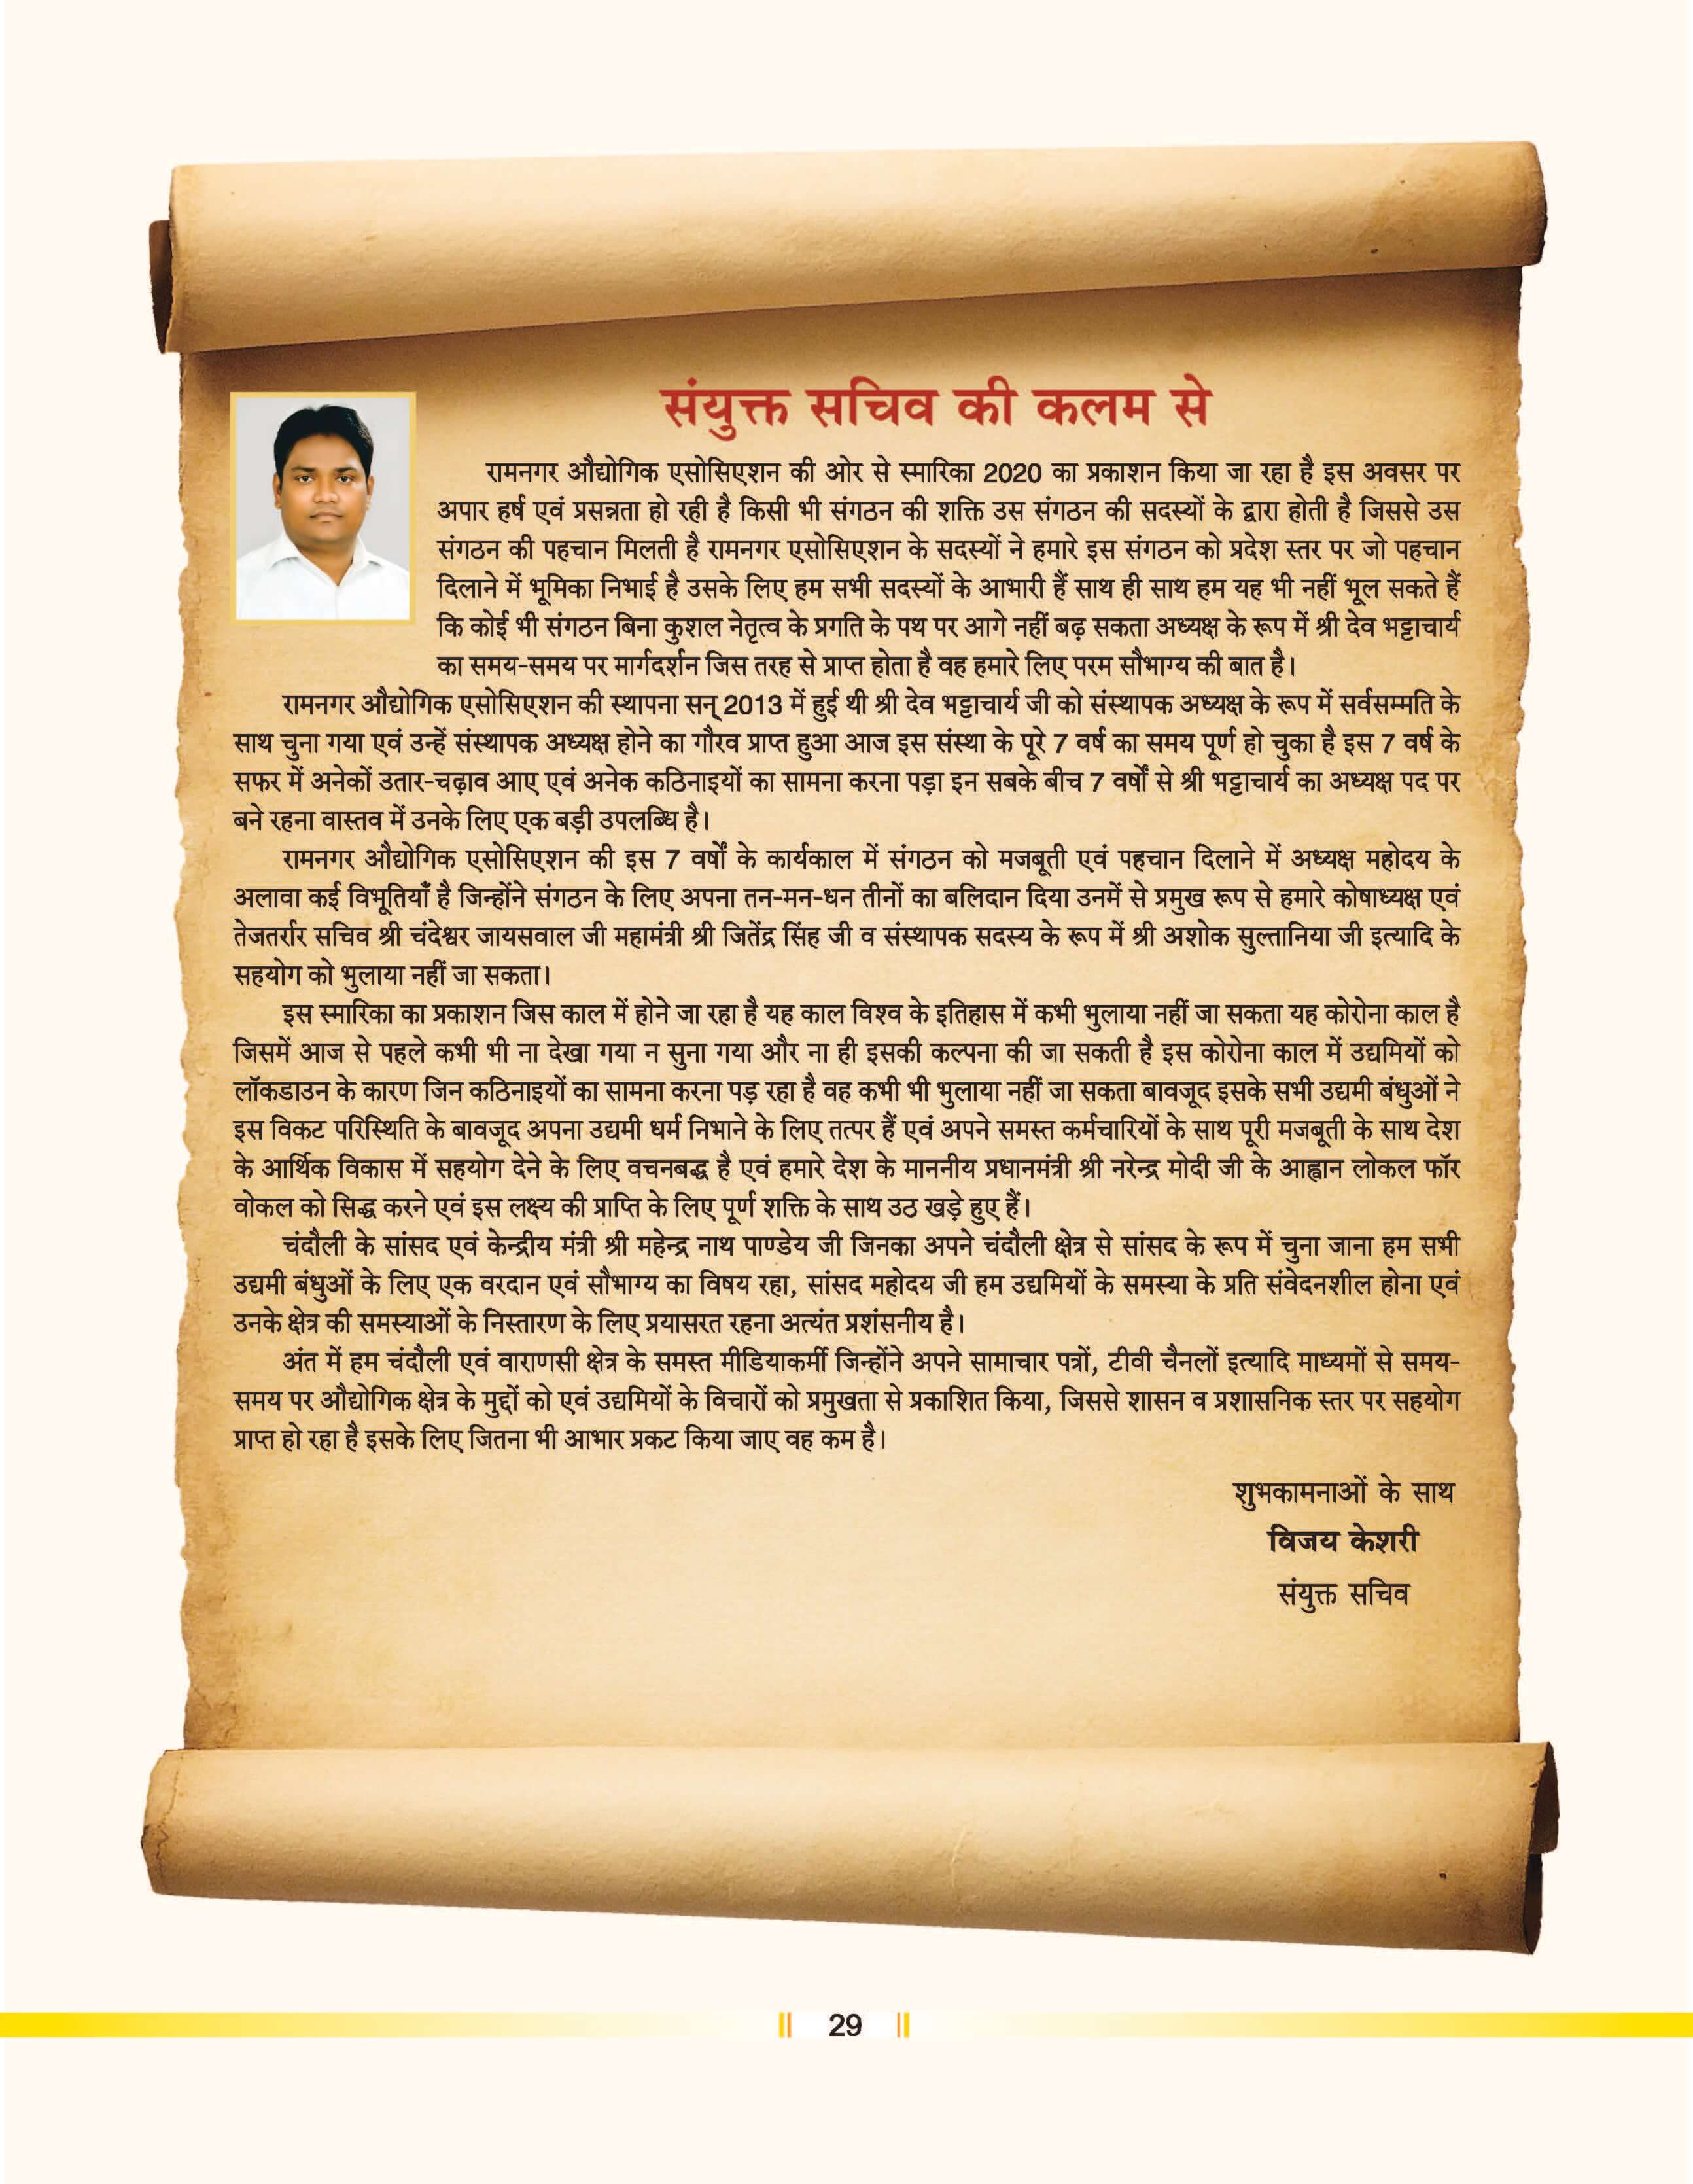 संयुक्त सचिव की कलम से
रामनगर औद्योगिक एसोसिएशन की ओर से स्मारिका 2020 का प्रकाशन किया जा रहा है इस अवसर पर
अपार हर्ष एवं प्रसन्नता हो रही है किसी भी संगठन की शक्ति उस संगठन की सदस्यों के द्वारा होती है जिससे उस
संगठन की पहचान मिलती है रामनगर एसोसिएशन के सदस्यों ने हमारे इस संगठन को प्रदेश स्तर पर जो पहचान
दिलाने में भूमिका निभाई है उसके लिए हम सभी सदस्यों के आभारी हैं साथ ही साथ हम यह भी नहीं भूल सकते हैं
कि कोई भी संगठन बिना कुशल नेतृत्व के प्रगति के पथ पर आगे नहीं बढ़ सकता अध्यक्ष के रूप में श्री देव भट्टाचार्य
का समय-समय पर मार्गदर्शन जिस तरह से प्राप्त होता है वह हमारे लिए परम सौभाग्य की बात है।
रामनगर औद्योगिक एसोसिएशन की स्थापना सन् 2013 में हुई थी श्री देव भट्टाचार्य जी को संस्थापक अध्यक्ष के रूप में सर्वसम्मति के
साथ चुना गया एवं उन्हें संस्थापक अध्यक्ष होने का गौरव प्राप्त हुआ आज इस संस्था के पूरे 7 वर्ष का समय पूर्ण हो चुका है इस 7 वर्ष के
सफर में अनेकों उतार-चढ़ाव आए एवं अनेक कठिनाइयों का सामना करना पड़ा इन सबके बीच 7 वर्षों से श्री भट्टाचार्य का अध्यक्ष पद पर
बने रहना वास्तव में उनके लिए एक बड़ी उपलब्धि है।
रामनगर औद्योगिक एसोसिएशन की इस 7 वर्षों के कार्यकाल में संगठन को मजबूती एवं पहचान दिलाने में अध्यक्ष महोदय के
अलावा कई विभूतियाँ है जिन्होंने संगठन के लिए अपना तन-मन-धन तीनों का बलिदान दिया उनमें से प्रमुख रूप से हमारे कोषाध्यक्ष एवं
तेजतर्रार सचिव श्री चंदेश्वर जायसवाल जी महामंत्री श्री जितेंद्र सिंह जी व संस्थापक सदस्य के रूप में श्री अशोक सुल्तानिया जी इत्यादि के
सहयोग को भुलाया नहीं जा सकता।
इस स्मारिका का प्रकाशन जिस काल में होने जा रहा है यह काल विश्व के इतिहास में कभी भुलाया नहीं जा सकता यह कोरोना काल है
जिसमें आज से पहले कभी भी ना देखा गया न सुना गया और ना ही इसकी कल्पना की जा सकती है इस कोरोना काल में उद्यमियों को
लॉकडाउन के कारण जिन कठिनाइयों का सामना करना पड़ रहा है वह कभी भी भुलाया नहीं जा सकता बावजूद इसके सभी उद्यमी बंधुओं ने
इस विकट परिस्थिति के बावजूद अपना उद्यमी धर्म निभाने के लिए तत्पर हैं एवं अपने समस्त कर्मचारियों के साथ पूरी मजबूती के साथ देश
के आर्थिक विकास में सहयोग देने के लिए वचनबद्ध है एवं हमारे देश के माननीय प्रधानमंत्री श्री नरेन्द्र मोदी जी के आह्वान लोकल फॉर
वोकल को सिद्ध करने एवं इस लक्ष्य की प्राप्ति के लिए पूर्ण शक्ति के साथ उठ खड़े हुए हैं।
चंदौली के सांसद एवं केन्द्रीय मंत्री श्री महेन्द्र नाथ पाण्डेय जी जिनका अपने चंदौली क्षेत्र से सांसद के रूप में चुना जाना हम सभी
उद्यमी बंधुओं के लिए एक वरदान एवं सौभाग्य का विषय रहा, सांसद महोदय जी हम उद्यमियों के समस्या के प्रति संवेदनशील होना एवं
उनके क्षेत्र की समस्याओं के निस्तारण के लिए प्रयासरत रहना अत्यंत प्रशंसनीय है।
अंत में हम चंदौली एवं वाराणसी क्षेत्र के समस्त मीडियाकर्मी जिन्होंने अपने सामाचार पत्रों, टीवी चैनलों इत्यादि माध्यमों से समय-
समय पर औद्योगिक क्षेत्र के मुद्दों को एवं उद्यमियों के विचारों को प्रमुखता से प्रकाशित किया, जिससे शासन व प्रशासनिक स्तर पर सहयोग
प्राप्त हो रहा है इसके लिए जितना भी आभार प्रकट किया जाए वह कम है।
शुभकामनाओं के साथ
विजय केशरी
संयुक्त सचिव
29